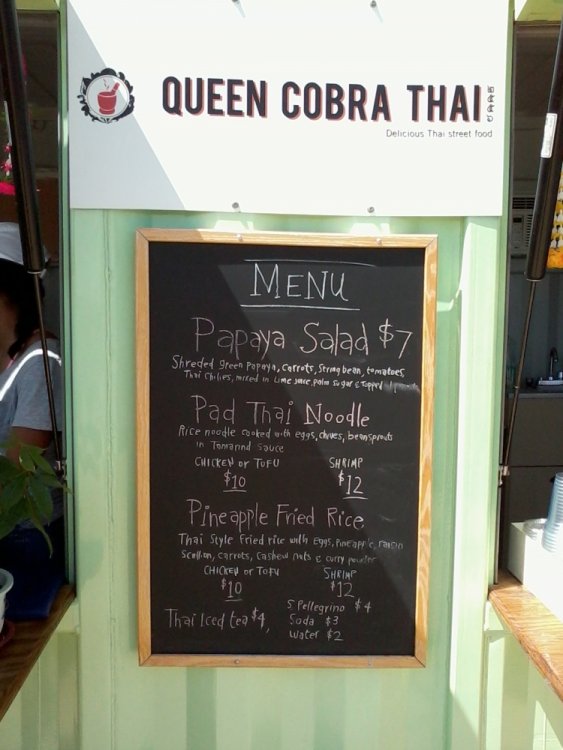 QUEEN COBRA THAI
Delicious Thai street food
MENU
Papaya Salad $7
Shreded green papaya, carrots, string bean, tomatoes,
Thai chilies, mixed in Lime Juice, palm sugar & topped
Pad Thai Noodle
Rice noodle cooked with eggs, chives, beansprouts
in Tamarind sauce
CHICKEN or TOFU SHRIMP
$10 $12
Pineapple Fried Rice
Thai Style Fried rice with Eggs, pineapple, raisin
Scallion, carrots, cashew nuts & curry powder
CHICKEN or TOFU SHRIMP
$10 $12
Thai Iced tea $4
S. Pellegrino $4
Soda $3
Water $2